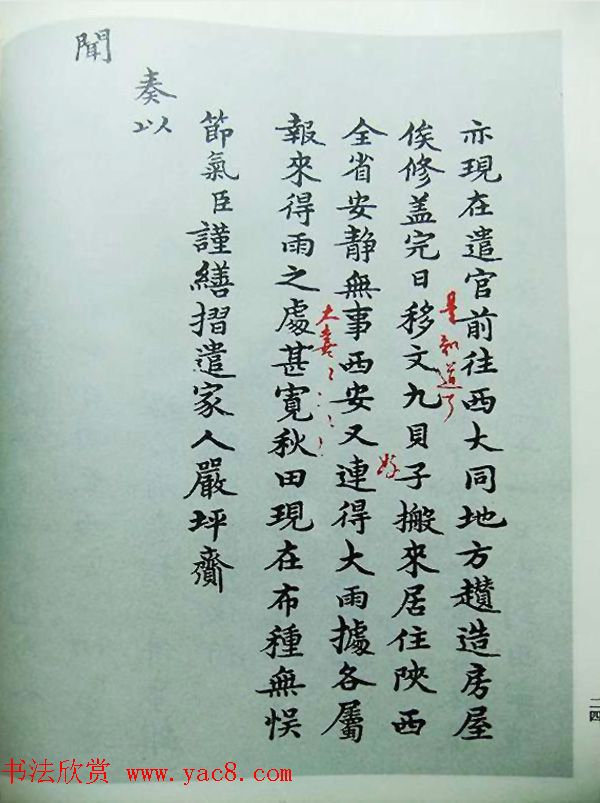 亦現在遣官前往西大同地方趲造房屋
是 知道了
俟修盖完日移文九貝子搬來居住陝西
好
全省安静無事西安又連得大雨據各屬
大喜
報來得雨之處甚寬秋田現在布種無悮
節氣臣謹繕摺遣家人嚴坪賫
奏以
聞
二四
书法欣赏 www.yac8.com